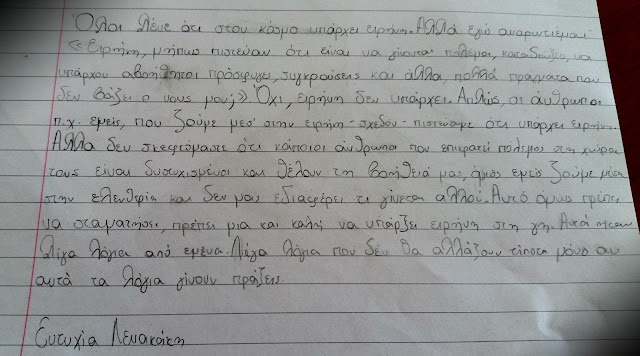 Όλοι λένε ότι στον κόσμο υπάρχει ειρήνη. Αλλά εγώ αναρωτιέμαι:
<<Ειρήνη, μήπως πιστεύαν ότι είναι να γίνονται πόλεμοι, να
υπάρχουν αβοήθητοι πρόσφυγες, συγκρούσεις και άλλα, πολλά πράγματα που
δεν βάζει ο νους μου;>> Όχι, ειρήνη δεν υπάρχει. Απλώς, οι άνθρωποι
π.χ. εμείς, που ζούμε μεσ' στην ειρήνη - σχεδόν - πιστεύουμε ότι υπάρχει ειρήνη.
Αλλά δεν σκεφτόμαστε ότι κάποιοι άνθρωποι που επικρατεί πόλεμος στη χώρα
τους είναι δυστυχισμένοι και θέλουν τη βοήθειά μας, όμως εμείς ζούμε μέσα
στην ελευθερία και δεν μας εδιαφέρει τι γίνεται αλλού. Αυτό όμως πρέπει
να σταματήσει, πρέπει μια και καλή να υπάρξει ειρήνη στη γη. Αυτά ήταν
λίγα λόγια από εμένα. Λίγα λόγια που δεν θα αλλάξουν τίποτα μόνο αν
αυτά τα λόγια γίνουν πράξεις.
Ευτυχία